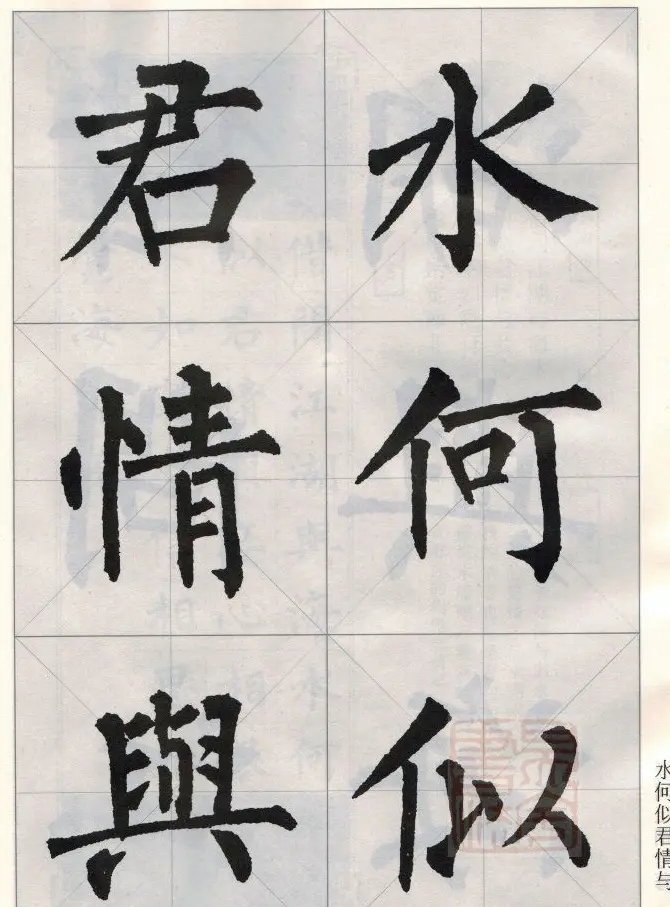 水何似
君情與
水何似君情与